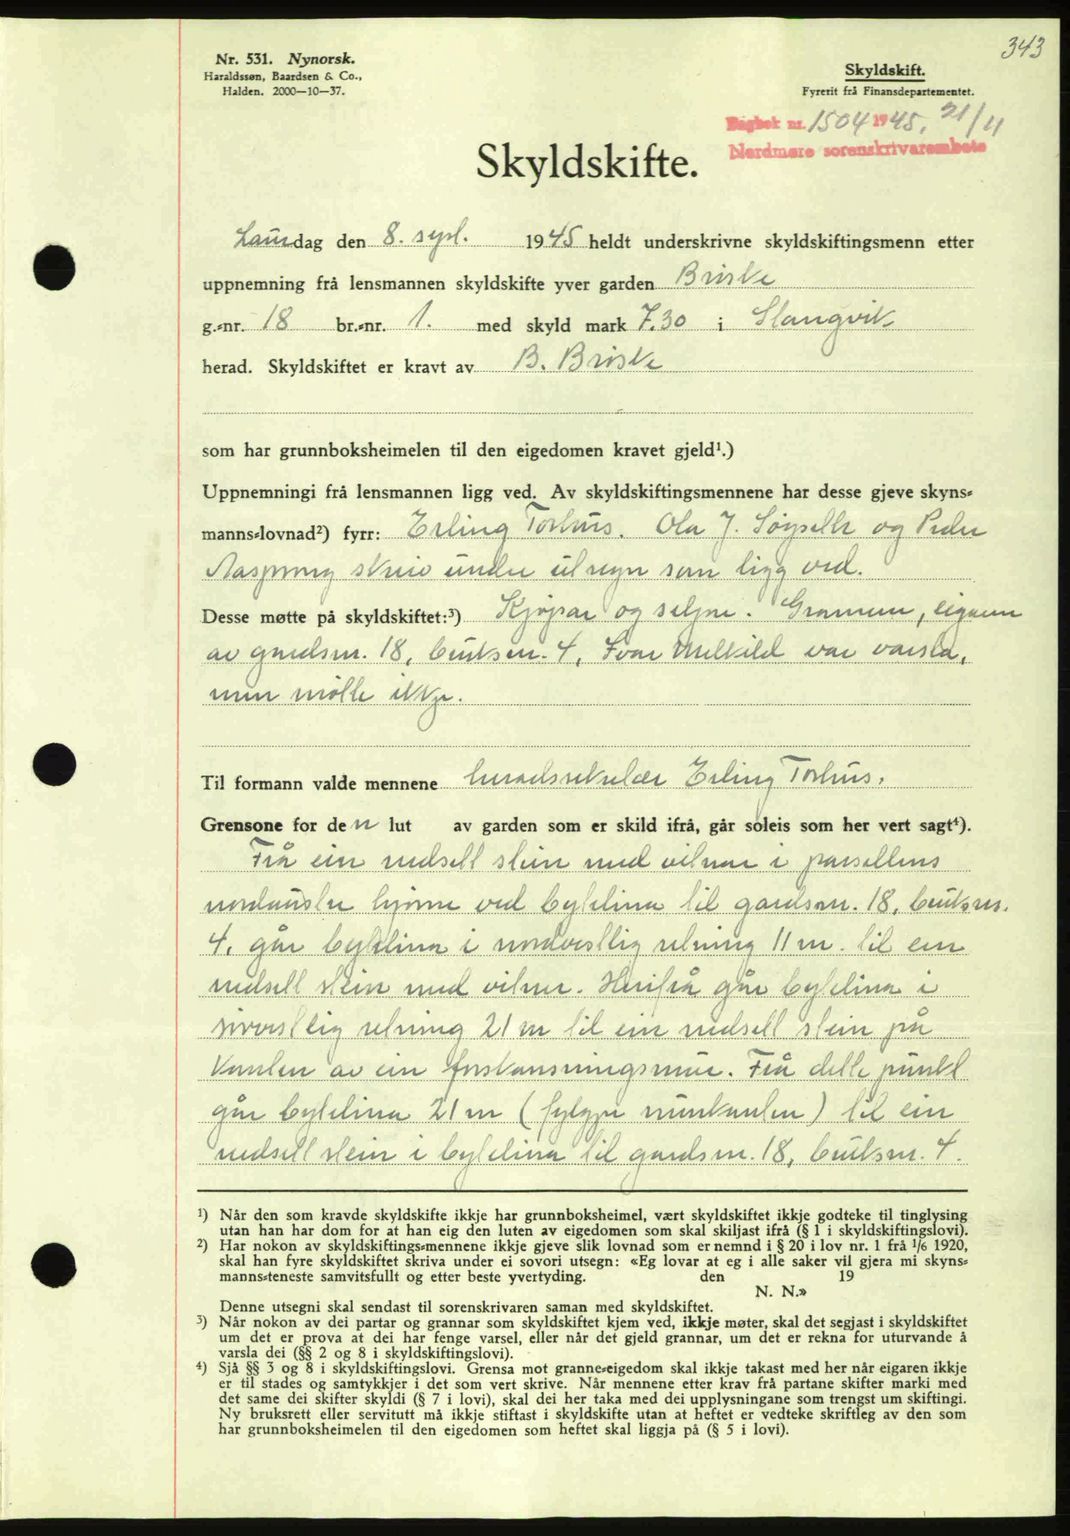 343
Nr. 531. Nynorsk.
Haraldssøn, Baardsen & Co.,
Halden. 2000—10—37.
Skyldskift.
Fyrerit frå Finansdepartementet.
Dagbok nr. 1504 1945, 21/11
Nordmøre sorenskrivarembete
Skyldskifte.
Laurdag den 8. sept. 1945 heldt underskrivne skyldskiftingsmenn etter
uppnemning frå lensmannen skyldskifte yver garden Brøske
g.-nr. 18 br.-nr. 1. med skyld mark 7.30 i Stangvik
herad. Skyldskiftet er kravt av B. Brøske
som har grunnboksheimelen til den eigedomen kravet gjeld¹.)
Uppnemningi frå lensmannen ligg ved. Av skyldskiftingsmennene har desse gjeve skyns-
manns-lovnad²) fyrr: Erling Torhus. Ola J. Søyseth og Peder
Aasprong skriv under utsegn som ligg ved.
Desse møtte på skyldskiftet:³) Kjøpar og seljar. Grannen, eigaren
av gardsnr. 18, bruksnr. 4, Ivar Melkild var varsla,
men møtte ikkje.
Til formann valde mennene heradssekretær Erling Torhus.
Grensone for den lut av garden som er skild ifrå, går soleis som her vert sagt⁴).
Frå ein nedsett stein med vitnar i parsellens
nordaustre hjørne ved bytelina til gardsnr. 18, bruksnr.
4, går bytelina i nordvestlig retning 11 m. til ein
nedsett stein med vitner. Herifrå går bytelina i
sørvestlig retning 21 m til ein nedsett stein på
kanten av ein forskansningsmur. Frå dette punkt
går bytelina 21 m (fylgjer murkanten) til ein
nedsett stein i bytelina til gardsnr. 18, bruksnr. 4.
¹) Når den som kravde skyldskifte ikkje har grunnboksheimel, vært skyldskiftet ikkje godteke til tinglysing
utan han har dom for at han eig den luten av eigedomen som skal skiljast ifrå (§ 1 i skyldskiftingslovi).
²) Har nokon av skyldskiftings-mennene ikkje gjeve slik lovnad som er nemnd i § 20 i lov nr. 1 frå 1/6 1920,
skal han fyre skyldskiftet skriva under ei sovori utsegn: «Eg lovar at eg i alle saker vil gjera mi skyns-
manns-teneste samvitsfullt og etter beste yvertyding. den 19
N. N.»
Denne utsegni skal sendast til sorenskrivaren saman med skyldskiftet.
³) Når nokon av dei partar og grannar som skyldskiftet kjem ved, ikkje møter, skal det segjast i skyldskiftet
um det er prova at dei har fenge varsel, eller når det gjeld grannar, um det er rekna for uturvande å
varsla dei (§§ 2 og 8 i skyldskiftingslovi).
⁴) Sjå §§ 3 og 8 i skyldskiftingslovi. Grensa mot granne-eigedom skal ikkje takast med her når eigaren ikkje
er til stades og samtykkjer i det som vert skrive. Når mennene etter krav frå partane skifter marki med
det same dei skifter skyldi (§ 7 i lovi), skal dei her taka med dei upplysningane som trengst um skiftingi.
Ny bruksrett eller servitutt må ikkje stiftast i skyldskifte utan at heftet er vedteke skriftleg av den som
har grunnboksheimelen til den eigedomen som heftet skal liggja på (§ 5 i lovi).